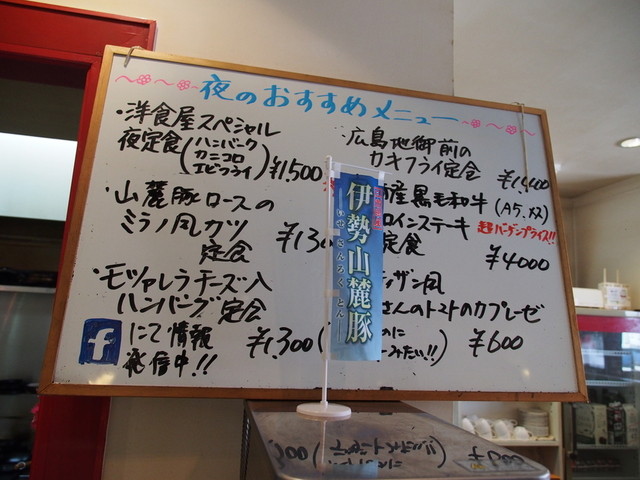 夜のおすすめメニュー
・洋食屋スペシャル
夜定食(ハンバーグ
カニコロ
エビフライ) ¥1,500
・山麓豚ロースの
ミラノ風カツ
定食 ¥130
・モツァレラチーズ入
ハンバーグ定食
¥1,300
f にて情報
発信中!!
・広島地御前の
カキフライ定食
産黒毛和牛 (A5.メス)
ロインステーキ 超バーゲンプライス!!
定食 ¥4000
ザン風
さんのトマトのカプレーゼ
に
ーみたい!!) ¥600
伊勢山麓豚
いせさんろくとん